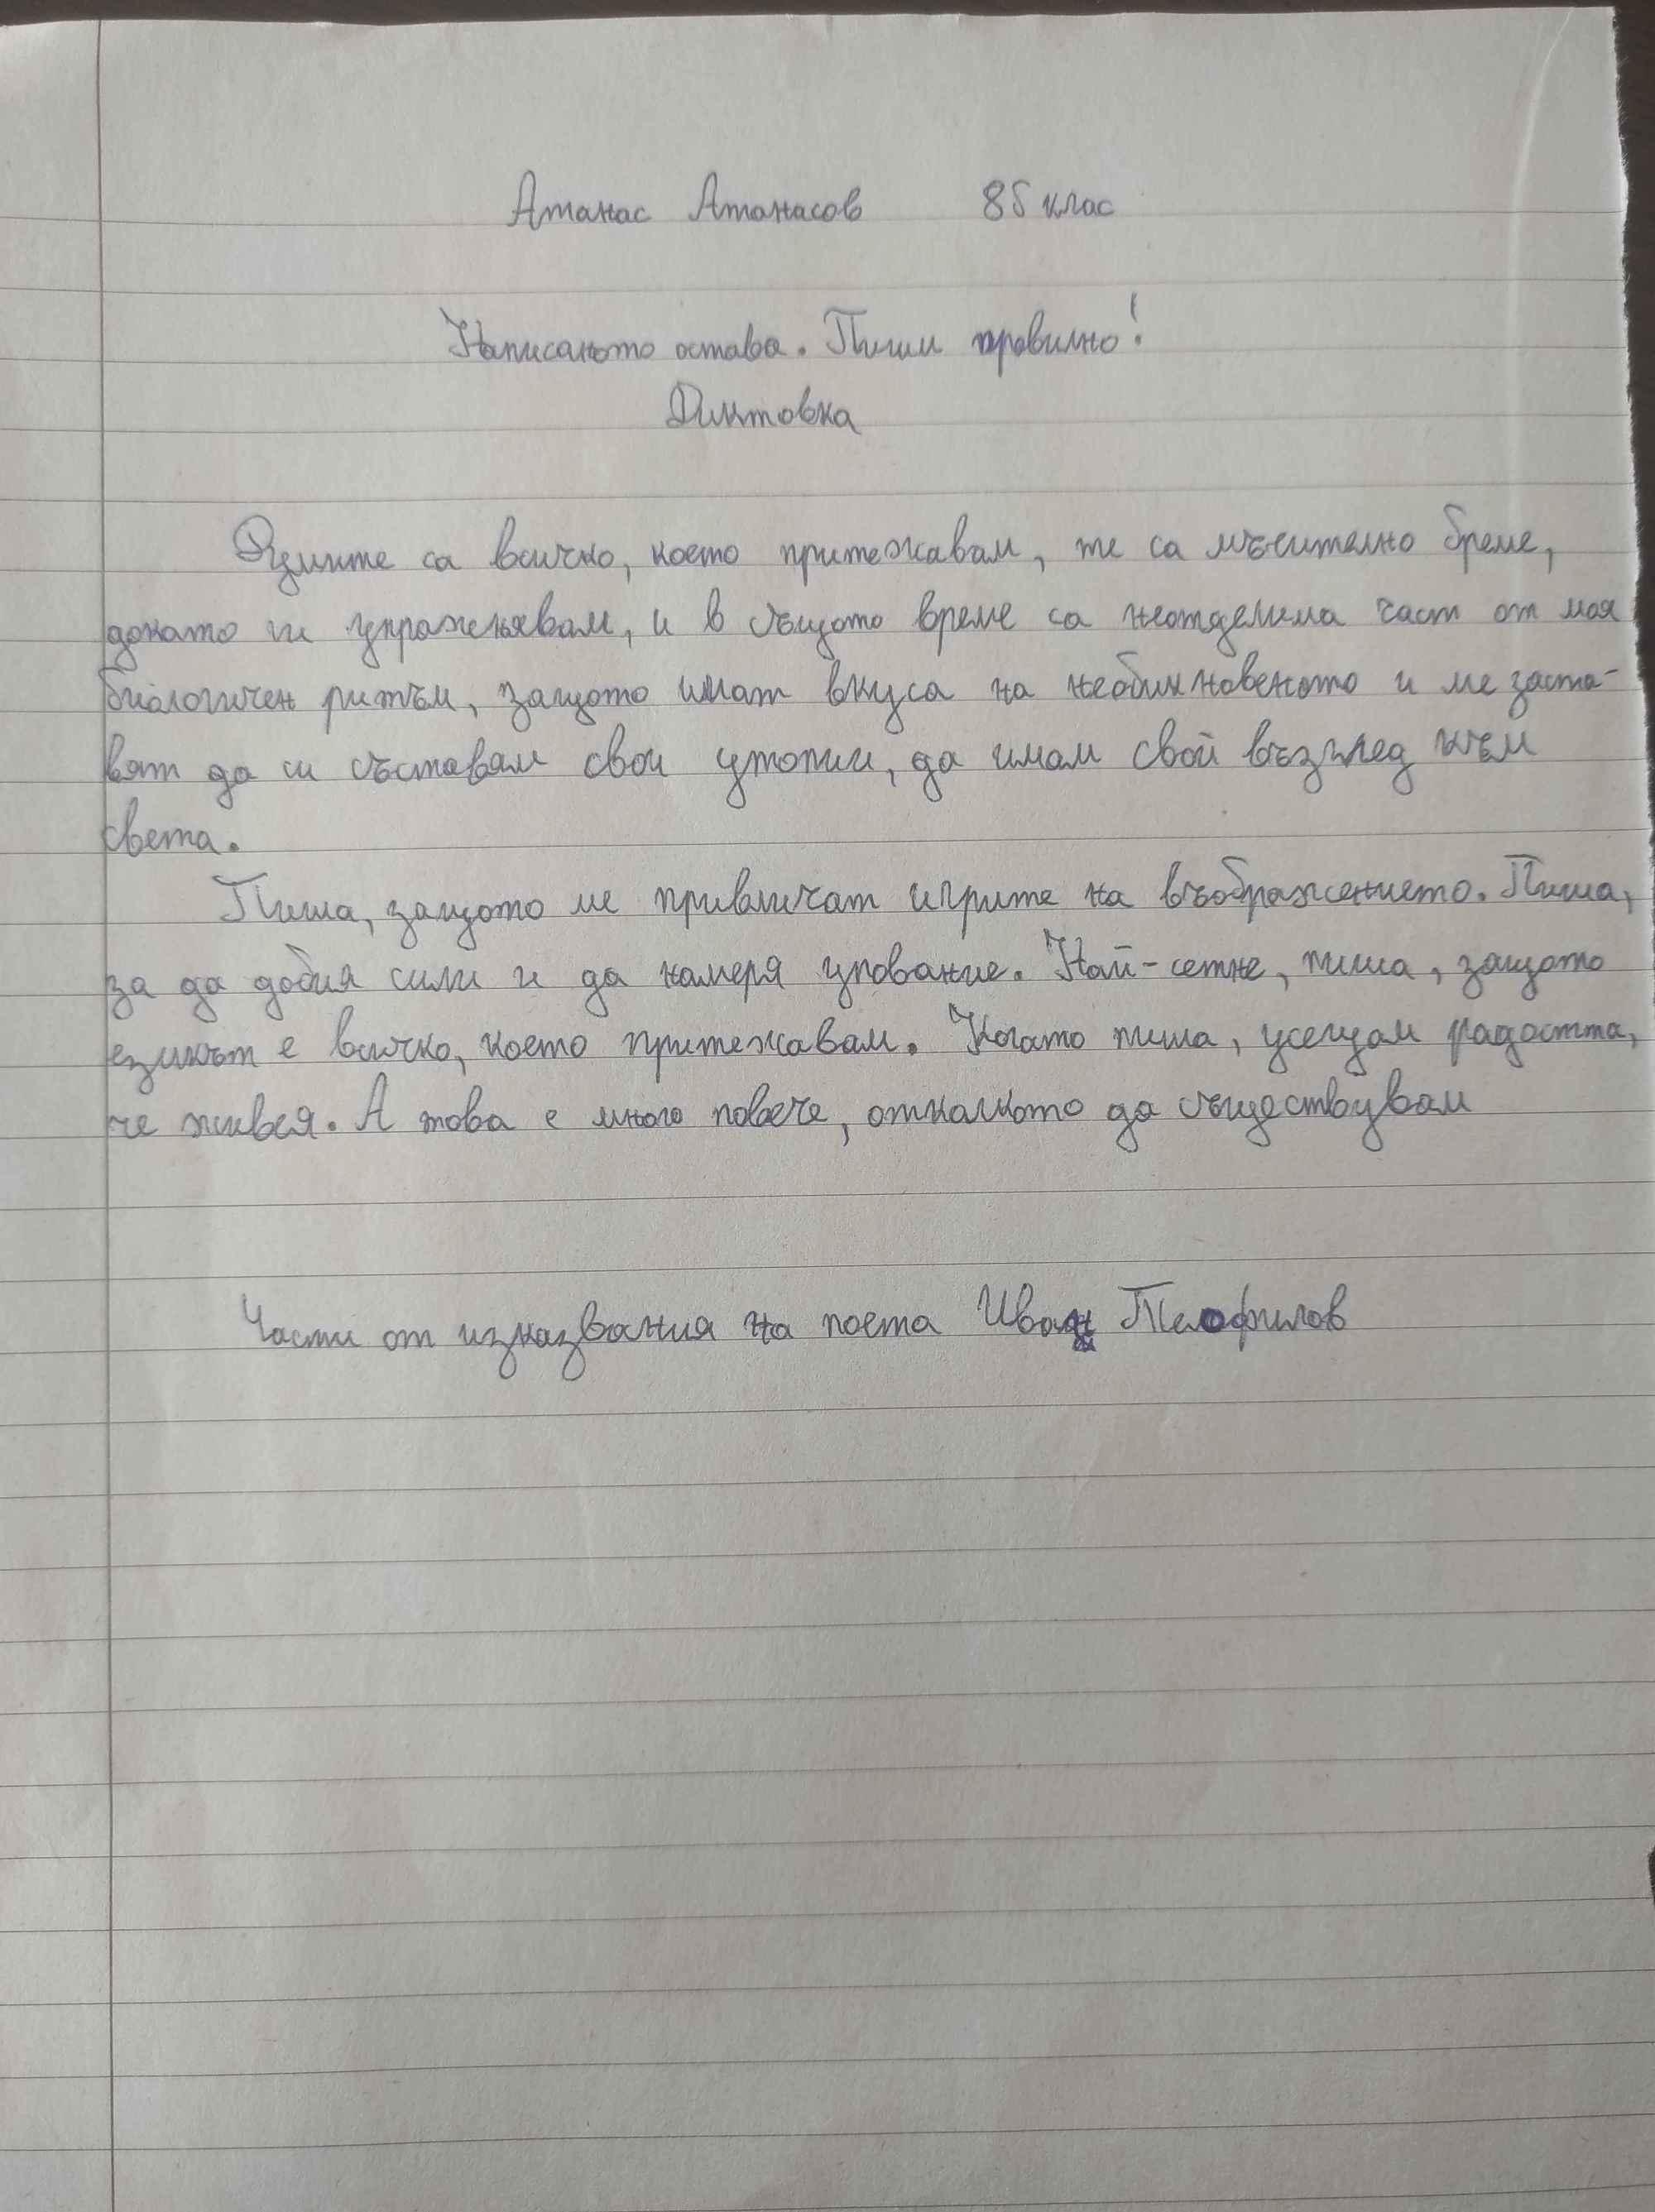 Атанас Атанасов 8б клас
Написаното остава. Пиши правилно!
Диктовка
Думите са всичко, което притежавам, те са мъчително бреме,
докато ги упражнявам, и в същото време са неотделима част от моя
биологичен ритъм, защото имат вкуса на необикновеното и ме заста-
вят да си съставям свои утопии, да имам свой възглед към
света.
Пиша, защото ме привличат игрите на въображението. Пиша,
за да добия сили и да намеря упование. Най-сетне, пиша, защото
езикът е всичко, което притежавам. Когато пиша, усещам радостта,
че живея. А това е много повече, отколкото да съществувам
Части от изказвания на поета Иван Теофилов